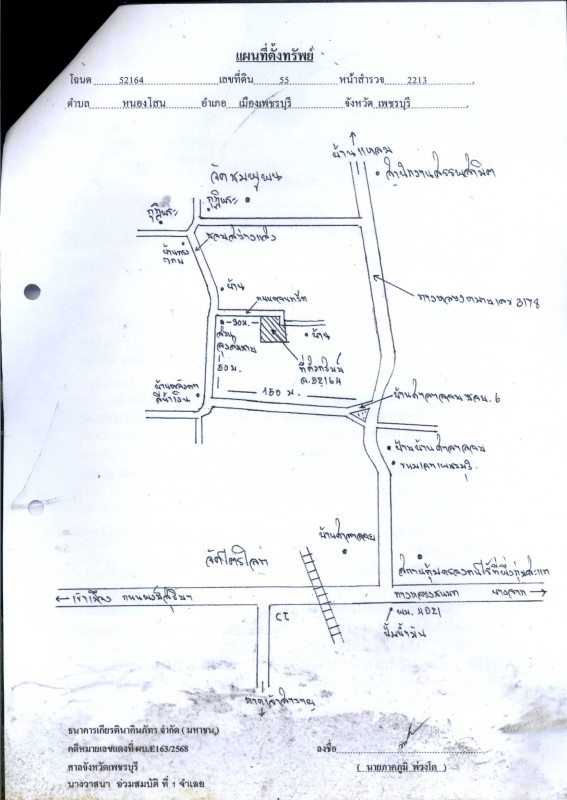 แผนที่ตั้งทรัพย์
โฉนด 52164 เลขที่ดิน 55 หน้าสำรวจ 2213
ตำบล หนองโสน อำเภอ เมืองเพชรบุรี จังหวัด เพชรบุรี
บ้านแหลม
สำนักงานสรรพสามิต
วัดชมพูพน
กุฏิพระ
กุฏิพระ
ซอยสว่างแสง
บ้าน
ทางหลวงหมายเลข 3178
ถนนคอนกรีต
30ม.
บ้าน
ที่ตั้งทรัพย์
ฉ.52164
50ม.
150 ม.
บ้านหลังคา
สีน้ำเงิน
บ้านศาลาลอย ซอย. 6
ป้ายบ้านศาลาลอย
ขนมเค้กเพชรบุรี
บ้านศาลาลอย
วัดไตรโลก
เข้าเมือง
พบ. 4021
ปั้มน้ำมัน
ธนาคารเกียรตินาคินภัทร จำกัด (มหาชน)
คดีหมายเลขแดงที่ ผบ.E163/2568
ศาลจังหวัดเพชรบุรี
นางวาสนา อ่วมสมบัติ ที่ 1 จำเลย
ลงชื่อ
( นายภาคภูมิ พ่วงโต )